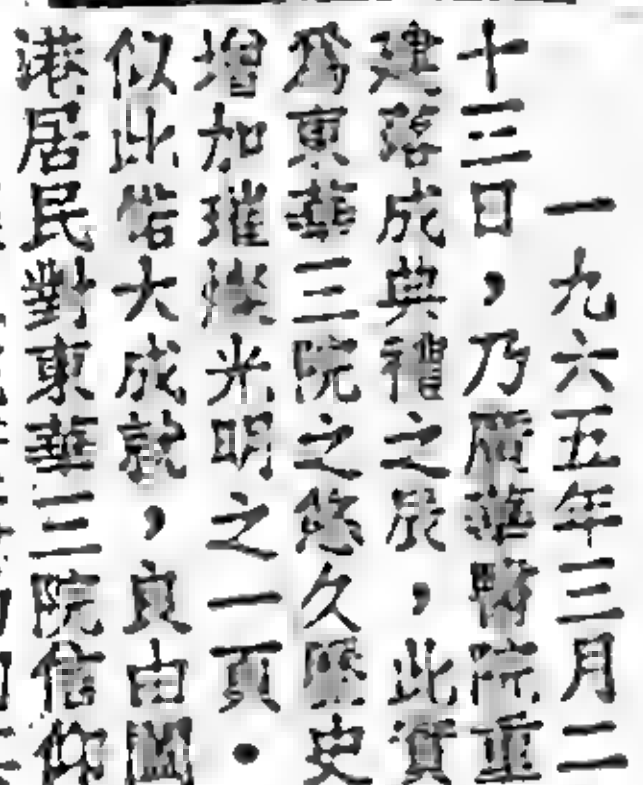 一九六五年三月二
十三日，乃廣華醫院重
建落成典禮之辰，此實
爲東華三院之悠久歷史
增加璀燦光明之一頁．
似此偌大成就，良由闔
港居民對東華三院信仰